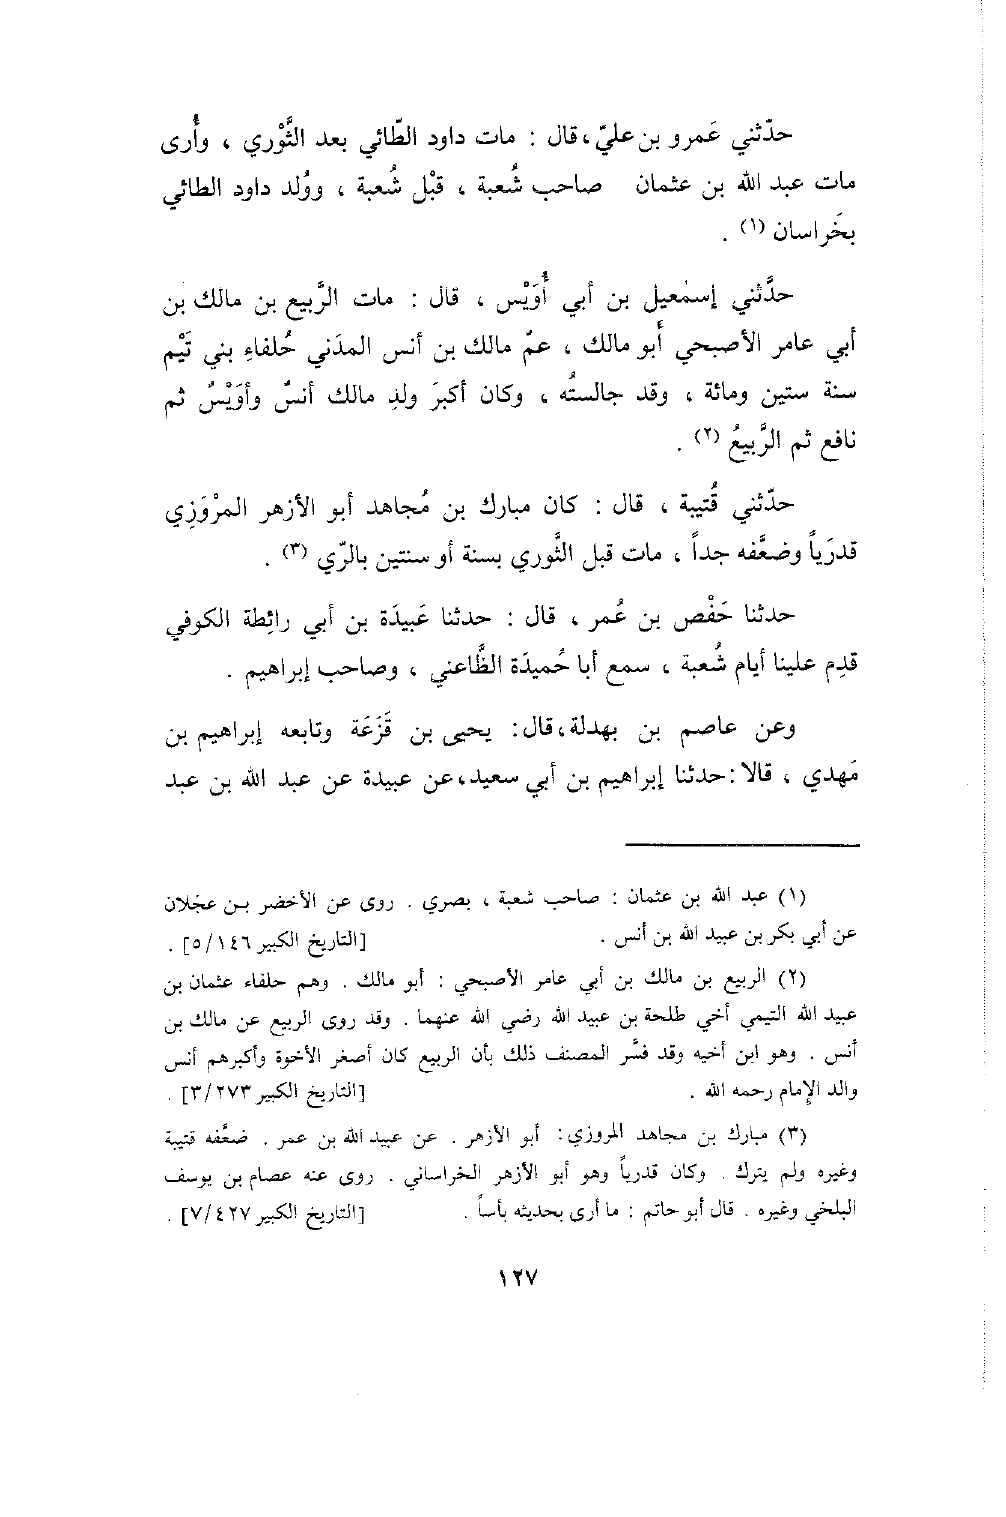 حدّثني عَمرو بن عليّ، قال : مات داود الطّائي بعد الثَّوْري ، وأُرى
مات عبد الله بن عثمان صاحب شُعبة ، قبْل شُعبة ، ووُلد داود الطائي
بخَراسان (١) .
حدَّثني إسمٰعيل بن أبي أُوَيْس ، قال : مات الرَّبيع بن مالك بن
أبي عامر الأصبحي أبو مالك ، عمّ مالك بن أنس المدَني حُلفاءِ بني تَيْم
سنة ستين ومائة ، وقد جالستُه ، وكان أكبرَ ولدِ مالك أنسٌ وأوَيْسٌ ثم
نافع ثم الرَّبيعُ (٢) .
حدّثني قُتيبة ، قال : كان مبارك بن مُجاهد أبو الأزهر المرْوَزِي
قدرَياً وضعَّفه جداً ، مات قبل الثَّوري بسنة أو سنتين بالرّي (٣) .
حدثنا حَفْص بن عُمر ، قال : حدثنا عَبيدَة بن أبي رائِطة الكوفي
قدِم علينا أيام شُعبة ، سمع أبا حُميدَة الظَّاعني ، وصاحب إبراهيم .
وعن عاصم بن بهدلة، قال : يحيى بن قَزَعَة وتابعه إبراهيم بن
مَهدي ، قالا : حدثنا إبراهيم بن أبي سعيد، عن عبيدة عن عبد الله بن عبد
(١) عبد الله بن عثمان : صاحب شعبة ، بصري . روى عن الأخضر بن عجلان
عن أبي بكر بن عبيد الله بن أنس . [التاريخ الكبير ٥/١٤٦] .
(٢) الربيع بن مالك بن أبي عامر الأصبحي : أبو مالك . وهم حلفاء عثمان بن
عبيد الله التيمي أخي طلحة بن عبيد الله رضي الله عنهما . وقد روى الربيع عن مالك بن
أنس . وهو ابن أخيه وقد فسَّر المصنف ذلك بأن الربيع كان أصغر الأخوة وأكبرهم أنس
والد الإمام رحمه الله . [التاريخ الكبير ٣/٢٧٣] .
(٣) مبارك بن مجاهد المروزي : أبو الأزهر . عن عبيد الله بن عمر . ضعَّفه قتيبة
وغيره ولم يترك . وكان قدرياً وهو أبو الأزهر الخراساني . روى عنه عصام بن يوسف
البلخي وغيره . قال أبو حاتم : ما أرى بحديثه بأساً . [التاريخ الكبير ٧/٤٢٧] .
١٢٧